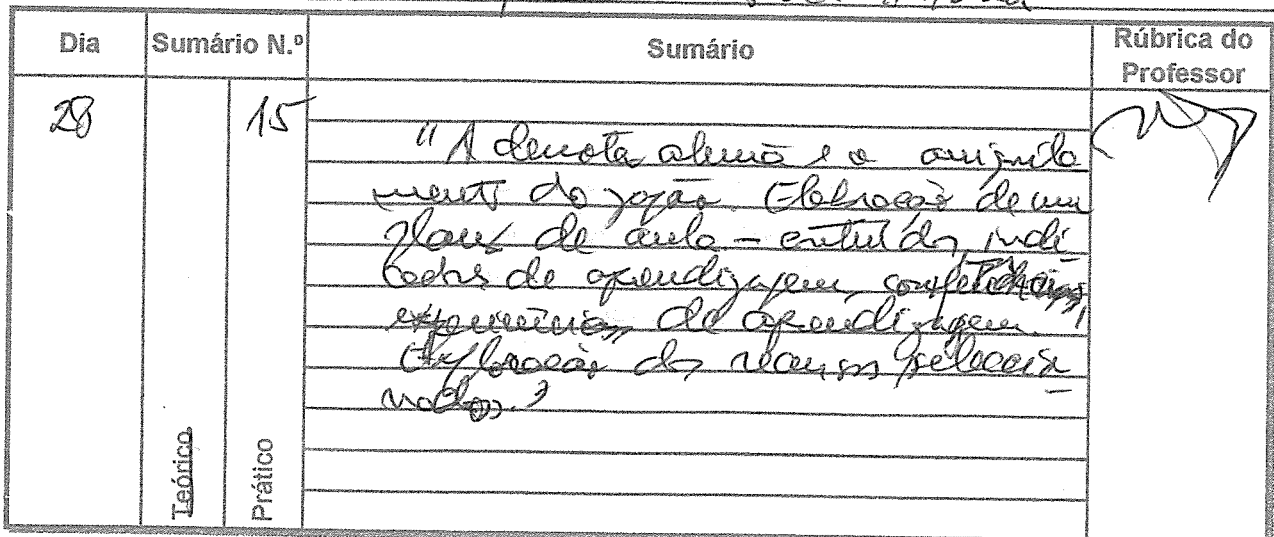 Dia Sumário N.º Sumário Rúbrica do Professor
28 15
"A derrota alemã e o aniquila
mento do Japão. Elaboração de um
plano de aula – conteúdos, indi
cadores de aprendizagem, competências,
experiências de aprendizagem.
Exploração dos recursos seleccio
nados."
Teórico
Prático